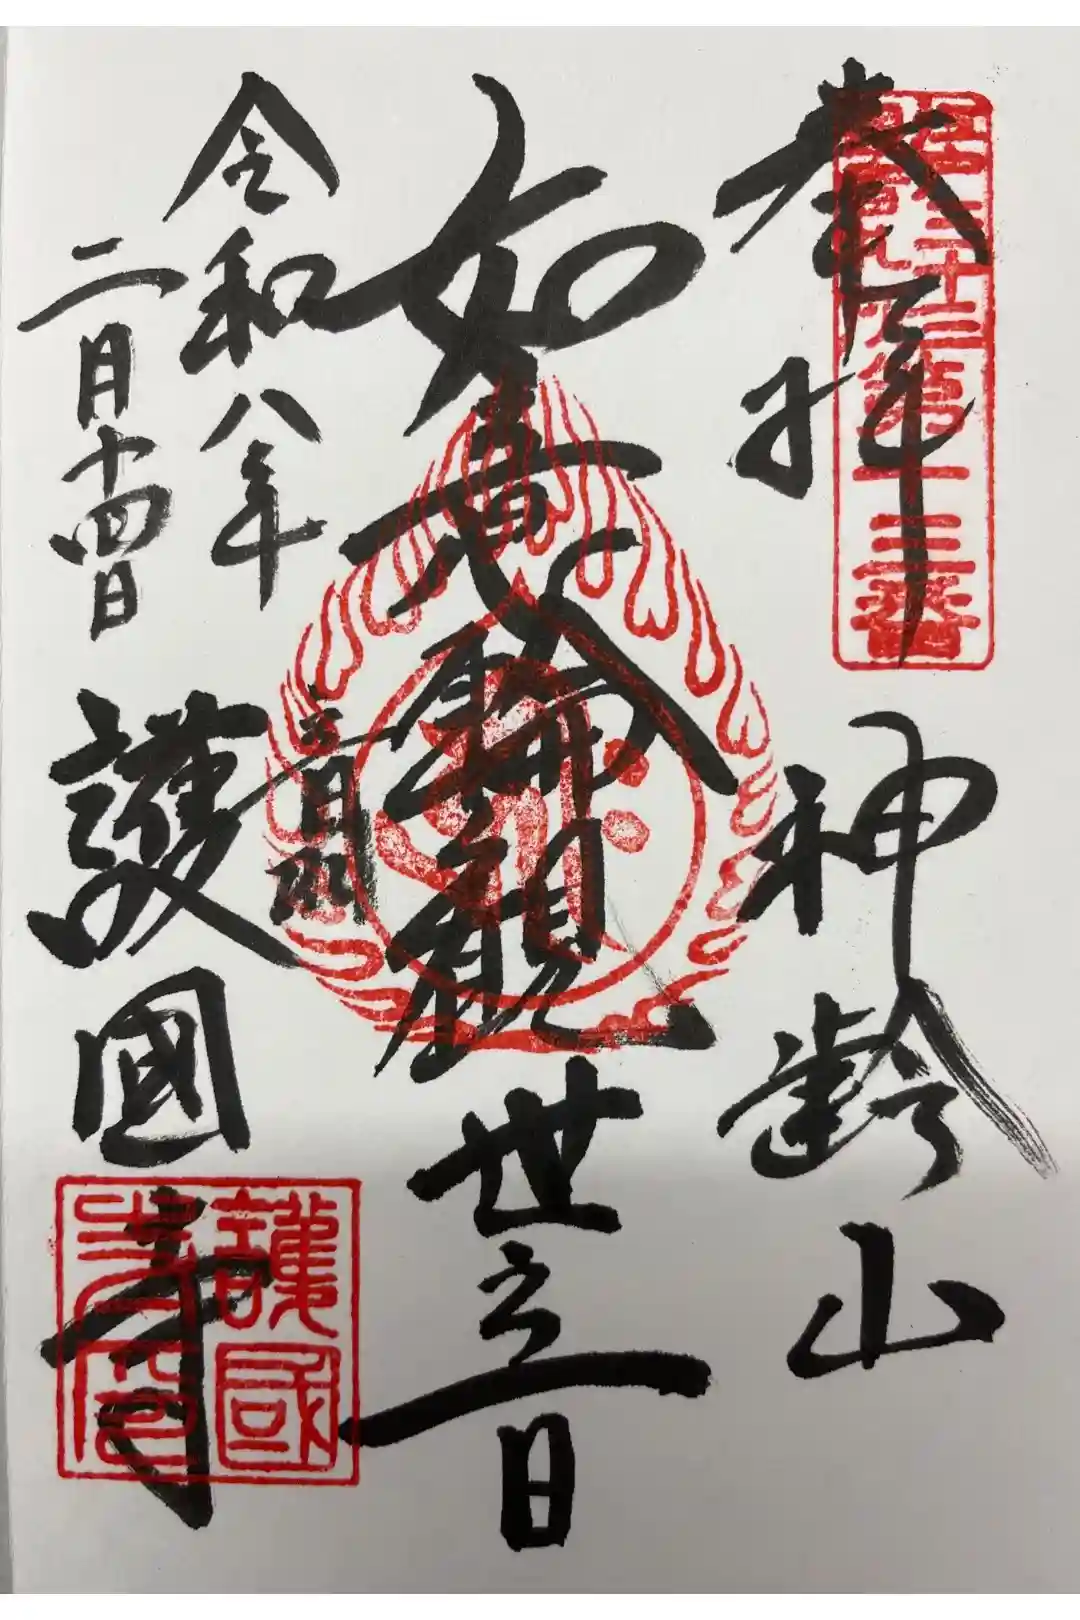 奉拝
神齢山
第十三番
如意輪観世音
令和八年
二月十四日
護國寺
護國
寺印